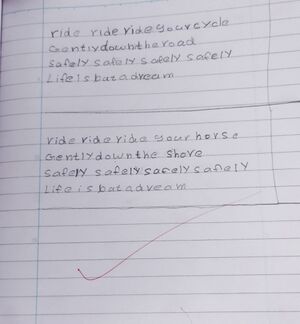 ride ride ride your cycle
Gently down the road
Safely safely safely safely
Life is but a dream
ride ride ride your horse
Gently down the shore
safely safely safely safely
Life is but a dream